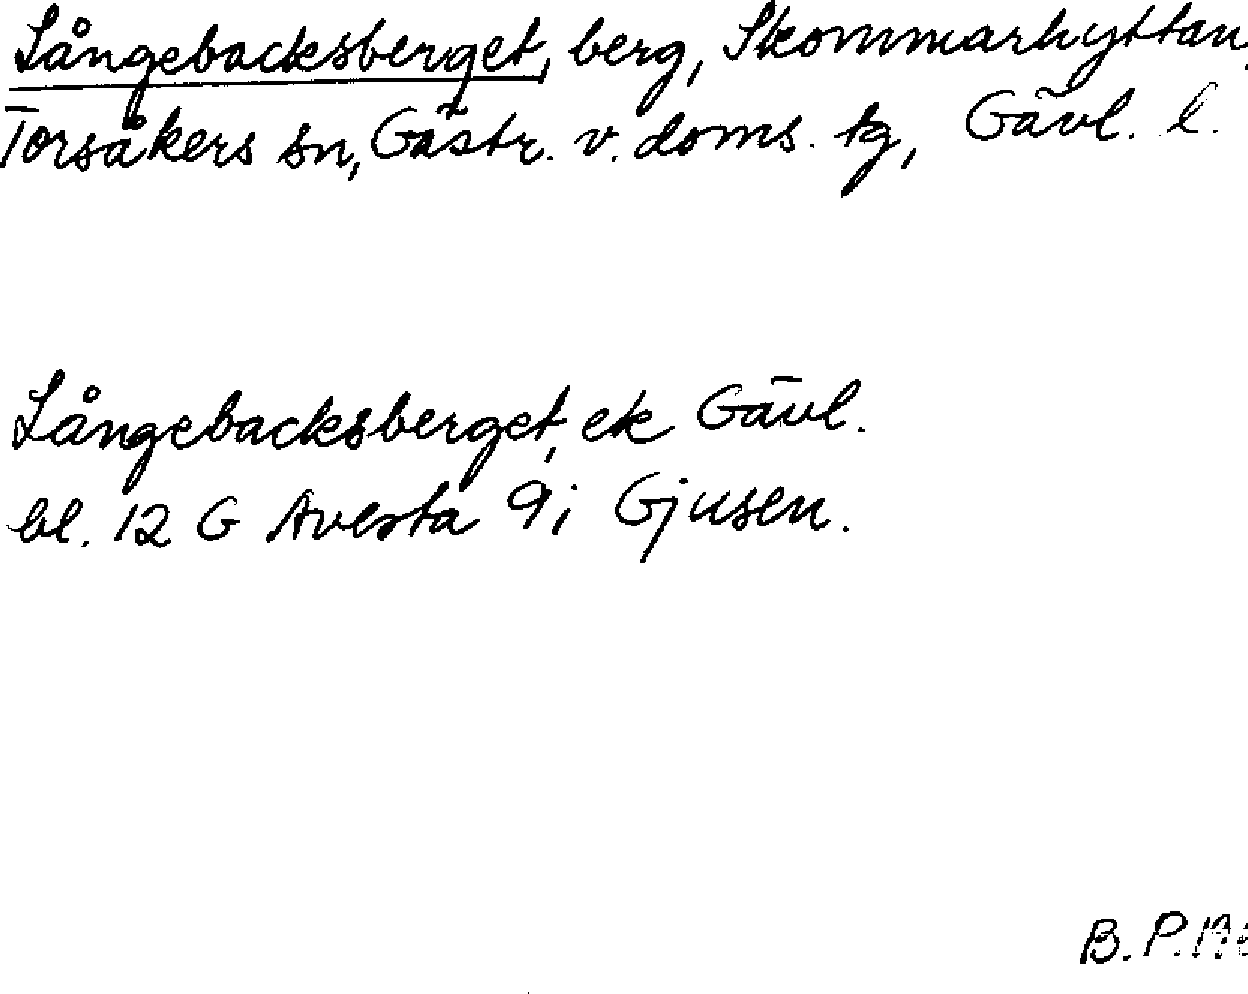 Långebacksberget, berg, Skommarhyttan,
Torsåkers sn, Gästr. v. doms. tg, Gävl. l.
Långebacksberget, ek Gävl.
bl. 12 G Avesta 9 i Gjusen.
B. P.